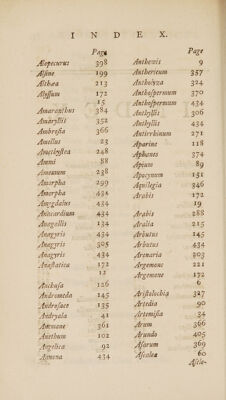 INDEX.
Page
Alopecurus 398
Alsine 199
Althæa 213
Alyssum 172
15
Amaranthus 384
Amaryllis 352
Ambrosia 366
Amellus 23
Amethystea 248
Ammi 88
Amomum 238
Amorpha 299
Amorpha 434
Amygdalus 434
Anacardium 434
Anagallis 134
Anagyris 434
Anagyris 305
Anagyris 434
Anastatica 172
12
Anchusa 126
Andromeda 145
Androsace 135
Andryala 41
Anemone 361
Anethum 102
Angelica 92
Annona 434
Page
Anthemis 9
Anthericum 357
Antholyza 324
Anthospermum 370
Anthospermum 434
Anthyllis 306
Anthyllis 434
Antirrhinum 271
Aparine 118
Aphanes 374
Apium 89
Apocynum 151
Aquilegia 346
Arabis 172
19
Arabis 288
Aralia 215
Arbutus 145
Arbutus 434
Arenaria 203
Argemone 221
Argemone 172
6
Aristolochia 327
Artedia 90
Artemisia 34
Arum 366
Arundo 405
Asarum 369
Ascalea 60
Ascle-